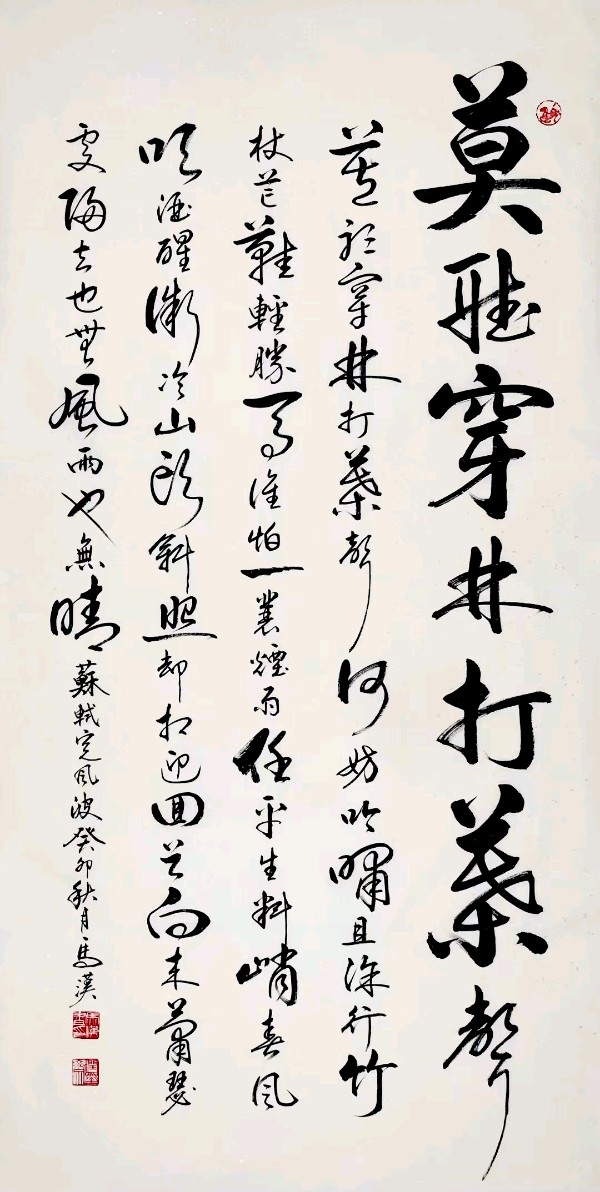 莫聽穿林打葉聲
莫聽穿林打葉聲何妨吟嘯且徐行竹
杖芒鞋輕勝馬誰怕一蓑煙雨任平生料峭春風
吹酒醒微冷山頭斜照却相迎回首向来蕭瑟
處歸去也無風雨也無晴蘇軾定風波癸卯秋月馬漢